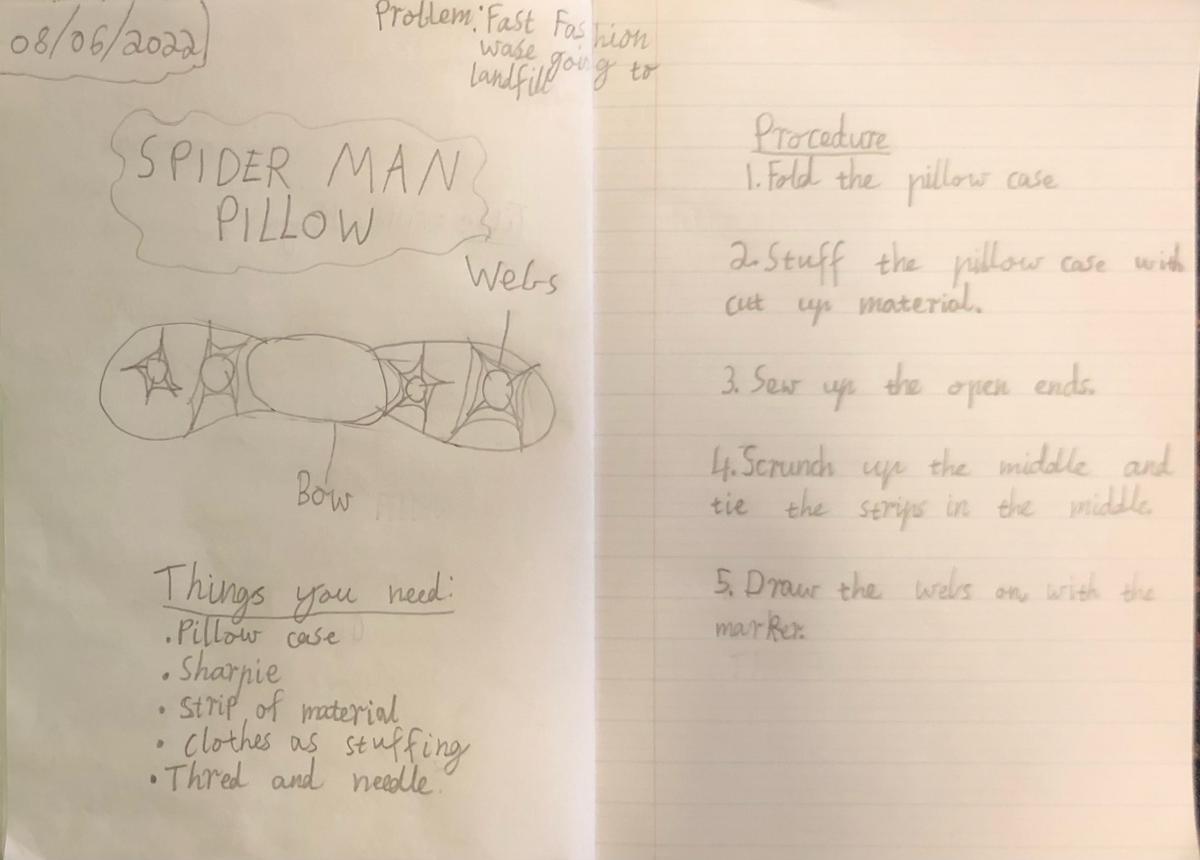 08/06/2022
Problem: Fast Fashion
wase going to
landfill
SPIDER MAN
PILLOW
Webs
Bow
Things you need:
• Pillow case
• Sharpie
• Strip of material
• Clothes as stuffing
• Thred and needle.
Procedure
1. Fold the pillow case
2. Stuff the pillow case with
cut up material.
3. Sew up the open ends.
4. Scrunch up the middle and
tie the strips in the middle.
5. Draw the webs on, with the
marker.